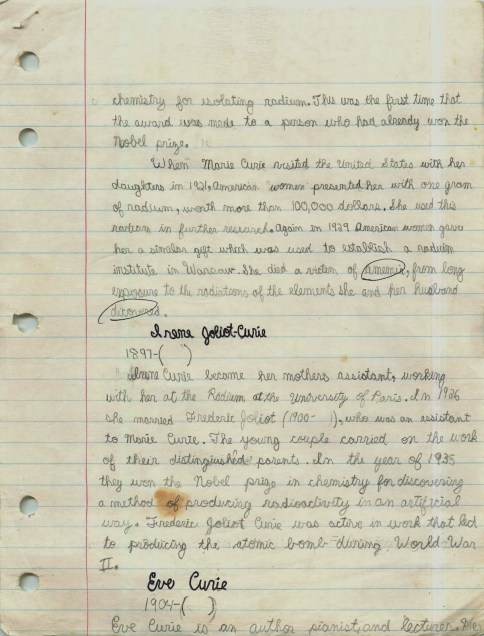 chemistry for isolating radium. This was the first time that
the award was made to a person who had already won the
Nobel prize.
When Marie Curie visited the United States with her
daughters in 1921, American women presented her with one gram
of radium, worth more than 100,000 dollars. She used this
radium in further research. Again in 1929 American women gave
her a similar gift which was used to establish a raduim
institute in Warsaw. She died a victim of anemia, from long
exposure to the radiations of the elements she and her husband
dicovered.
Irene Joliot-Curie
1897-( )
Irene Curie became her mothers assistant, working
with her at the Radium at the University of Paris. In 1926
she married Frederic Joliot (1900- ), who was an assistant
to Marie Curie. The young couple carried on the work
of their distinguished parents. In the year of 1935
they won the Nobel prize in chemistry for discovering
a method of producing radioactivity in an artificial
way. Frederic Joliot Curie was active in work that led
to producing the atomic bomb during World War
II.
Eve Curie
1904-( )
Eve Curie is an author pianist, and lecturer. She